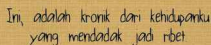 Ini, adalah kronik dari kehidupanku
yang mendadak jadi ribet